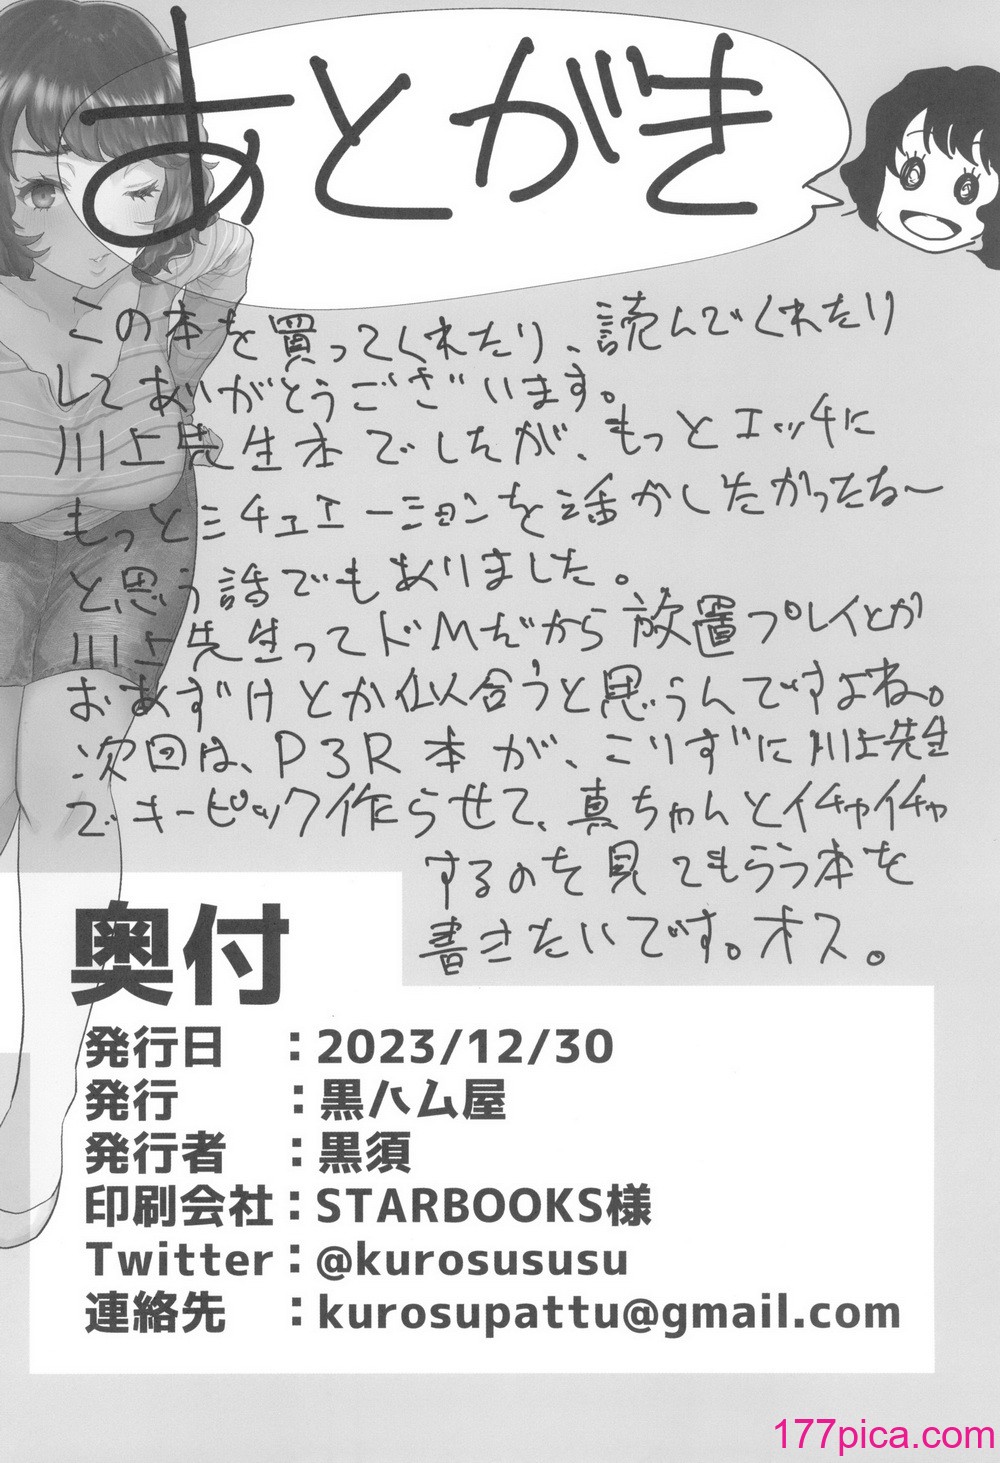 あとがき
この本を買ってくれたり、読んでくれたり
してありがとうございます。
川上先生本でしたが、もっとエッチに
もっとシチュエーションを活かしたかったな〜
と思う話でもありました。
川上先生ってドMだから放置プレイとか
おあずけとか似合うと思うんですよね。
次回は、P3R本か、こりずに川上先生
でキーピック作らせて、真ちゃんとイチャイチャ
するのを見てもらう本を
書きたいです。オス。
奥付
発行日 ：2023/12/30
発行 ：黒ハム屋
発行者 ：黒須
印刷会社：STARBOOKS様
Twitter：@kurosususu
連絡先 ：kurosupattu@gmail.com
177pica.com